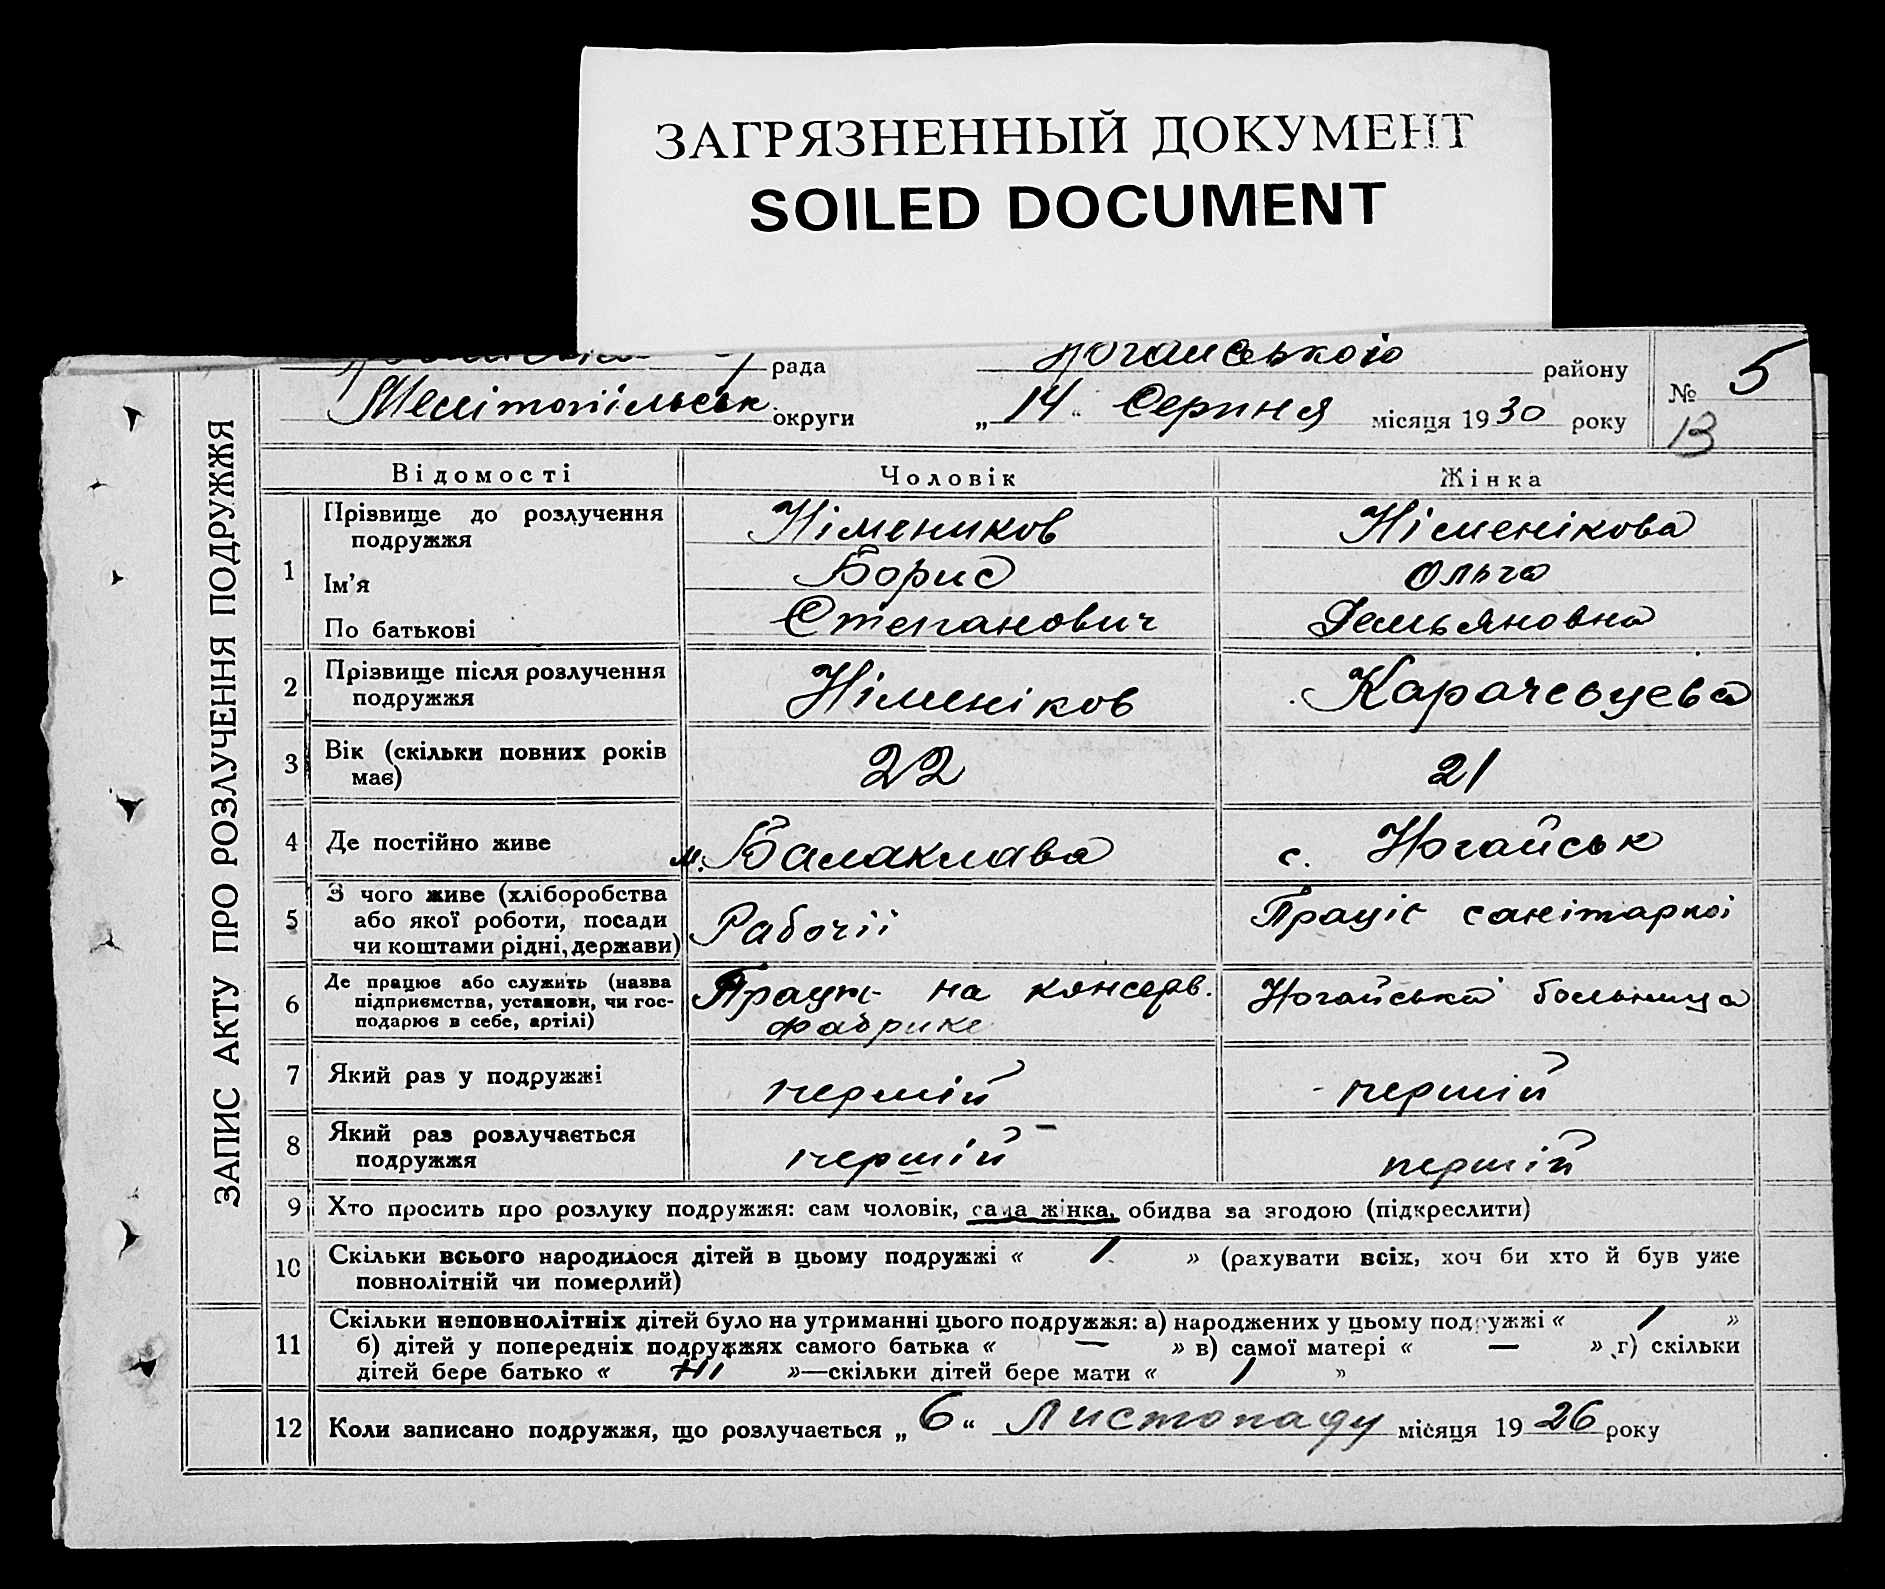 ЗАГРЯЗНЕННЫЙ ДОКУМЕНТ
SOILED DOCUMENT
рада Ногайського району
Мелітопільськ округи „14“ Серпня місяця 1930 року № 5
13
ЗАПИС АКТУ ПРО РОЗЛУЧЕННЯ ПОДРУЖЖЯ
Відомості Чоловік Жінка
1 Прізвище до розлучення подружжя Німеников Німенікова
Ім’я Борис Ольга
По батькові Степанович Демьяновна
2 Прізвище після розлучення подружжя Німеніков Карачевцева
3 Вік (скільки повних років має) 22 21
4 Де постійно живе м. Балаклава с. Ногайськ
5 З чого живе (хліборобства або якої роботи, посади чи коштами рідні, держави) Рабочіі Праціє санітаркої
6 Де працює або служить (назва підприємства, установи, чи господарює в себе, артілі) Працює на консерв. фабрике Ногайська больница
7 Який раз у подружжі першій першій
8 Який раз розлучається подружжя першій першій
9 Хто просить про розлуку подружжя: сам чоловік, сама жінка, обидва за згодою (підкреслити)
10 Скільки всього народилося дітей в цьому подружжі « 1 » (рахувати всіх, хоч би хто й був уже
повнолітній чи померлий)
11 Скільки неповнолітніх дітей було на утриманні цього подружжя: а) народжених у цьому подружжі « 1 »
б) дітей у попередніх подружжях самого батька « — » в) самої матері « — » г) скільки
дітей бере батько « Ні »—скільки дітей бере мати « 1 »
12 Коли записано подружжя, що розлучається „6“ Листопаду місяця 1926 року